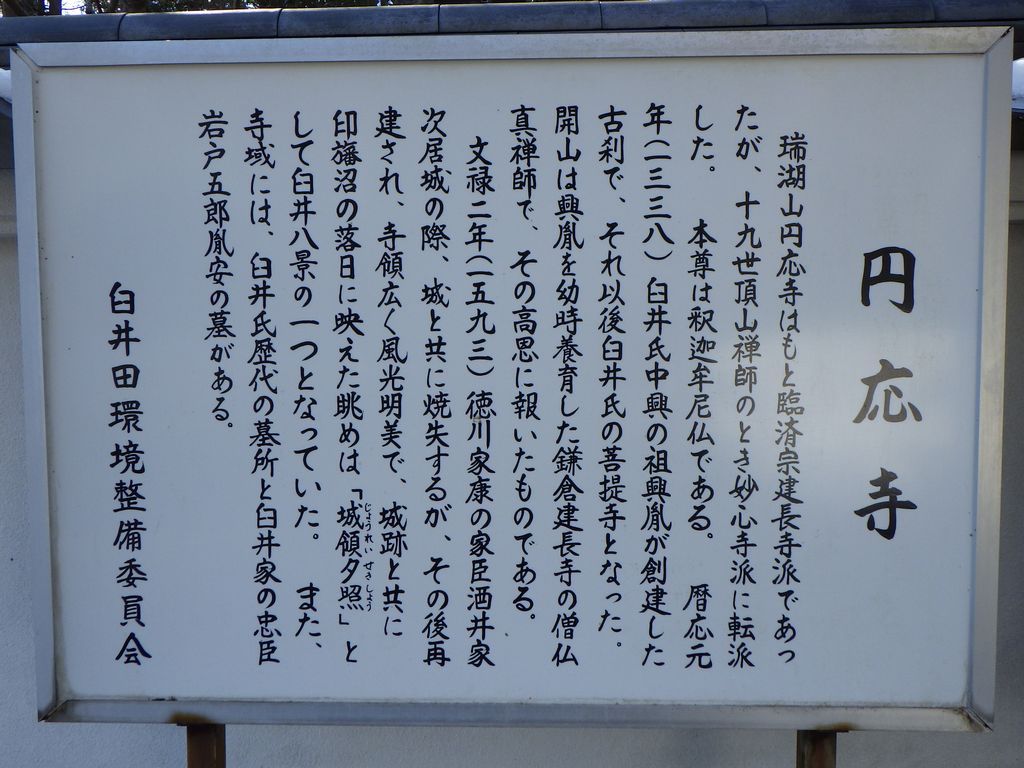 円応寺
瑞湖山円応寺はもと臨済宗建長寺派であっ
たが、十九世頂山禅師のとき妙心寺派に転派
した。　本尊は釈迦牟尼仏である。　暦応元
年(一三三八)臼井氏中興の祖興胤が創建した
古刹で、それ以後臼井氏の菩提寺となった。
開山は興胤を幼時養育した鎌倉建長寺の僧仏
真禅師で、その高恩に報いたものである。
文禄二年(一五九三)徳川家康の家臣酒井家
次居城の際、城と共に焼失するが、その後再
建され、寺領広く風光明美で、城跡と共に
印旛沼の落日に映えた眺めは「城領夕照」と
じょうれいせきしょう
して臼井八景の一つとなっていた。　また、
寺域には、臼井氏歴代の墓所と臼井家の忠臣
岩戸五郎胤安の墓がある。
臼井田環境整備委員会